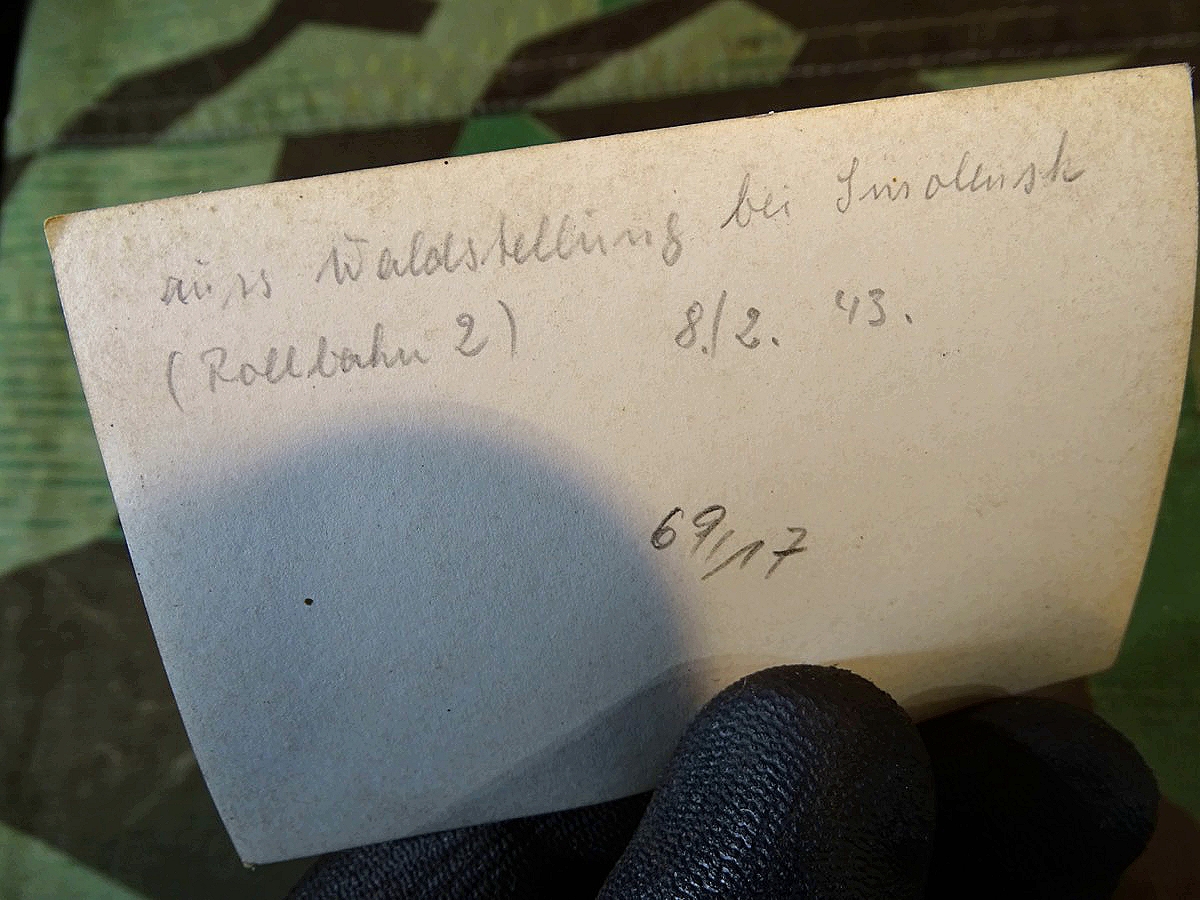 aus Waldstellung bei Smolensk
(Rollbahn 2) 8./2. 43.
69/17